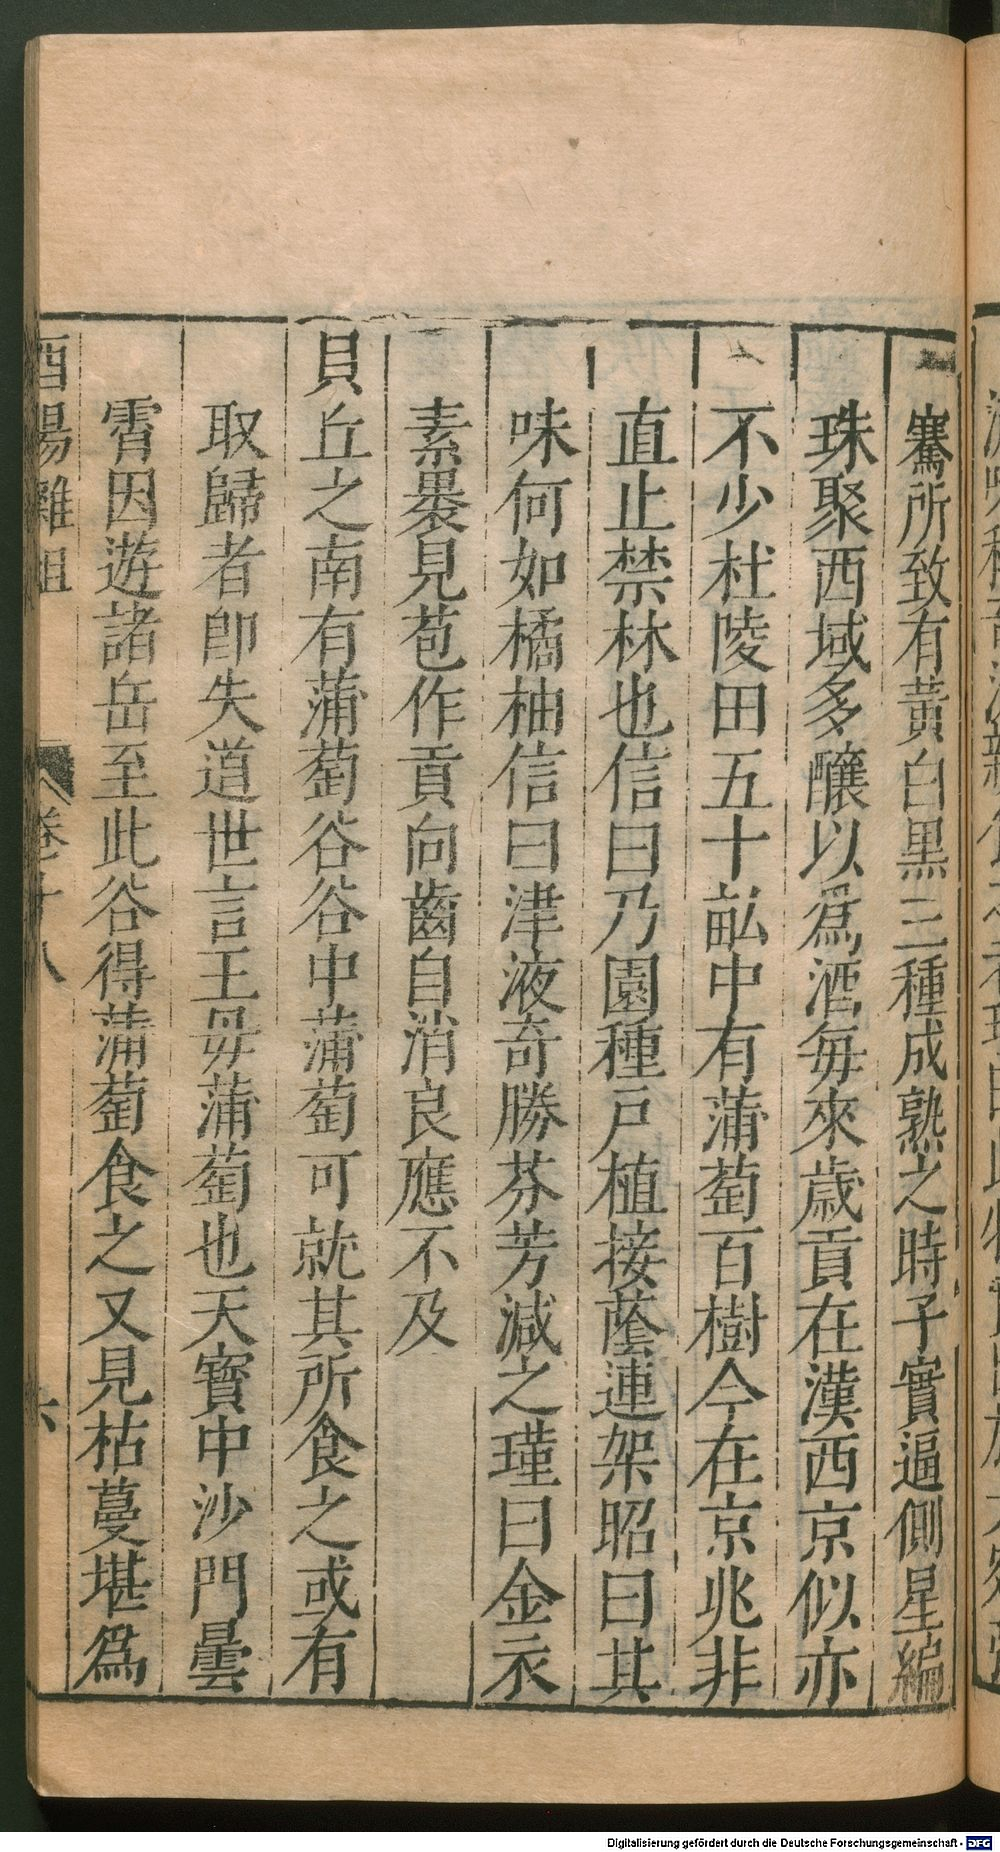 騫所致有黃白黒三種成熟之時子實逼側星編
珠聚西域多釀以爲酒每來歲貢在漢西京似亦
不少杜陵田五十畝中有蒲萄百樹今在京兆非
直止禁林也信曰乃園種戸植接蔭連架昭曰其
味何如橘柚信曰津液奇勝芬芳減之瑾曰金衣
素裹見苞作貢向齒自消良應不及
貝丘之南有蒲萄谷谷中蒲萄可就其所食之或有
取歸者卽失道世言王毋蒲萄也天寶中沙門曇
霄因遊諸岳至此谷得蒲萄食之又見枯蔓堪爲
酉陽雜俎
卷十八
六
Digitalisierung gefördert durch die Deutsche Forschungsgemeinschaft - DFG